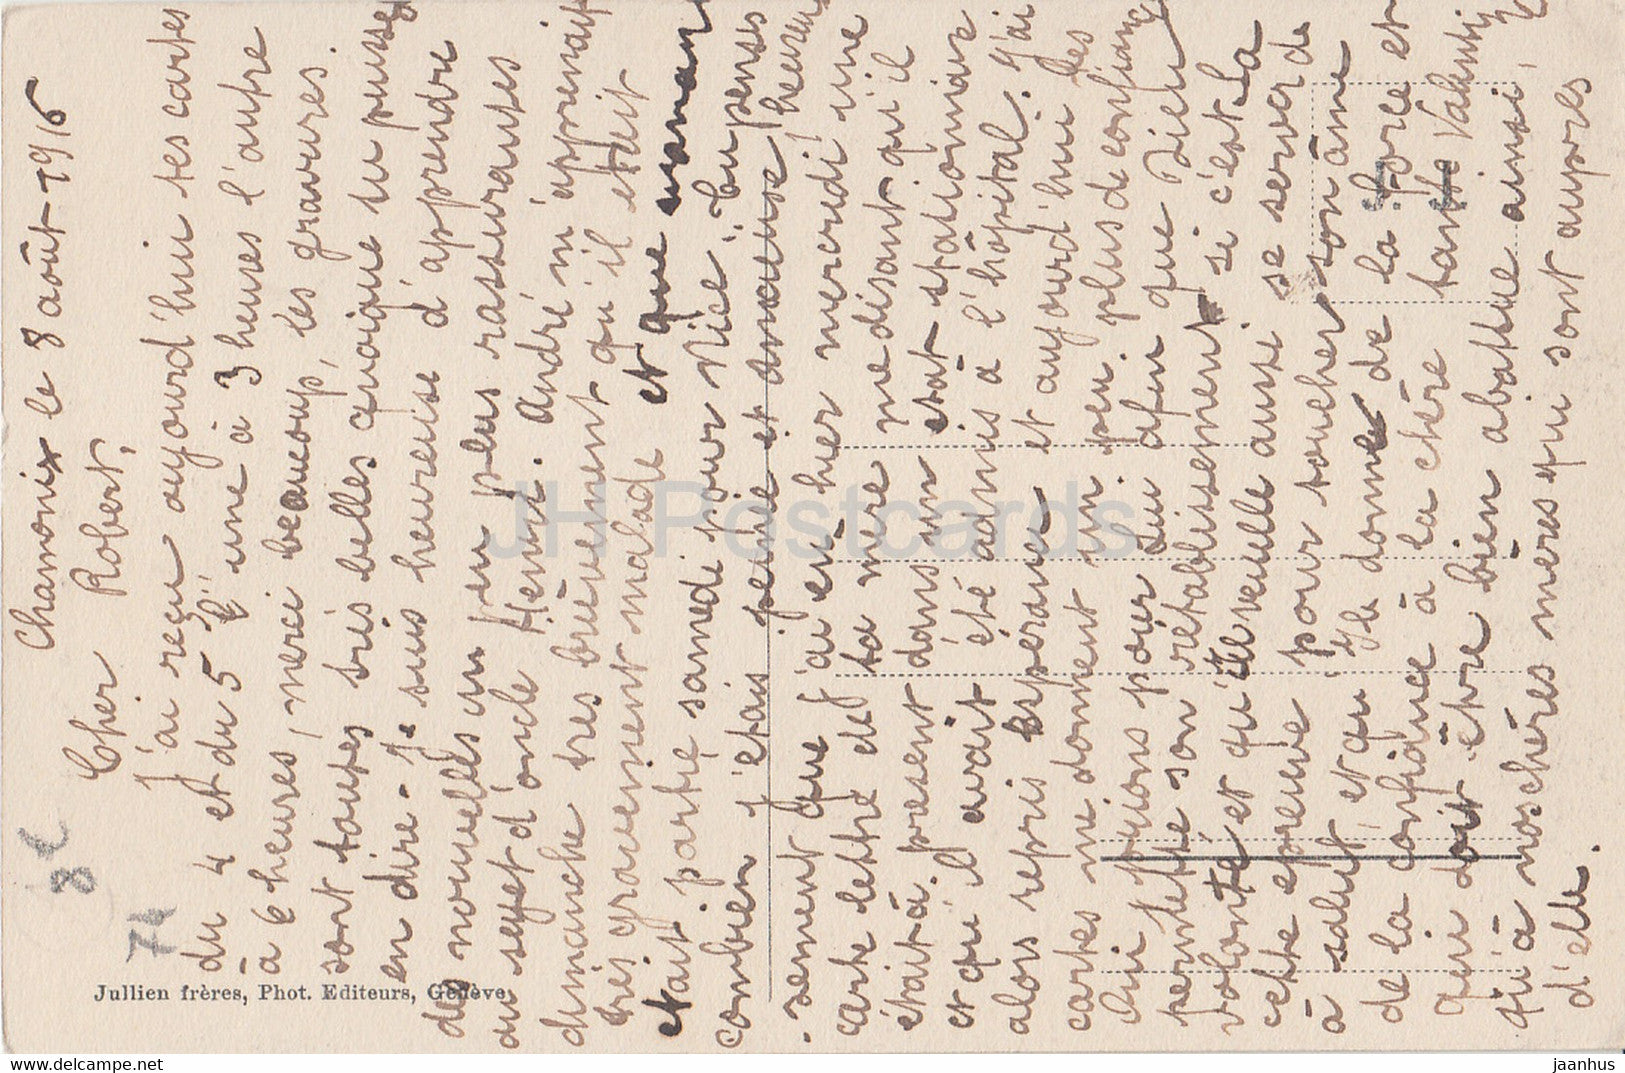 Chamonix le 8 août-1916
Cher Robert,
J'ai reçu aujourd'hui tes cartes
du 4 et du 5, l'une à 3 heures l'autre
à 6 heures, merci beaucoup, les gravures
sont toutes très belles quoique tu puisses
en dire - Je suis heureuse d'apprendre
des nouvelles un peu plus rassurantes
au sujet d'oncle Henri. André m'apprenait
dimanche très brièvement qu'il était
très gravement malade et que maman
était partie samedi pour Nice. Tu penses
combien j'étais peinée et anxieuse, heureu
-sement que j'ai eu hier mercredi une
carte lettre de ta mère me disant qu'il
était à présent dans un état stationnaire
et qu'il avait été admis à l'hôpital. J'ai
alors repris espérance et aujourd'hui les
cartes me donnent un peu plus de confiance
Oui prions pour Lui afin que Dieu
permette son rétablissement si c'est La
volonté et qu'il veuille aussi se servir de
cette épreuve pour toucher son âme
à salut, et qu'Il donne de la force et
de la confiance à la chère tante
qui doit être bien abattue ainsi
qu'à nos chères mères qui sont auprès
d'elle.
74
8€
Jullien frères, Phot. Editeurs, Genève
JH Postcards
delcampe.net
jaanhus